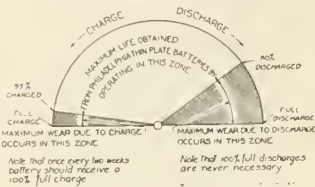 CHARGE
DISCHARGE
MAXIMUM LIFE OBTAINED
FROM PHILADELPHIA THIN PLATE BATTERIES BY
OPERATING IN THIS ZONE
95%
CHARGED
FULL
CHARGE
80%
DISCHARGED
FULL
DISCHARGE
MAXIMUM WEAR DUE TO CHARGE
OCCURS IN THIS ZONE
MAXIMUM WEAR DUE TO DISCHARGE
OCCURS IN THIS ZONE
Note that once every two weeks
battery should receive a
100% full charge
Note that 100% full discharges
are never necessary